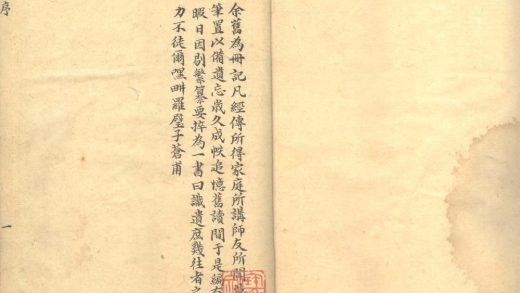 余舊為冊記凡經傳所得家庭所講師友所聞
筆置以備遺忘歲久成帙追憶舊讀間于是編
暇日因剔繁纂要捽為一書曰識遺庶幾往者之
力不徒爾嘿畊羅璧子蒼甫
序
一